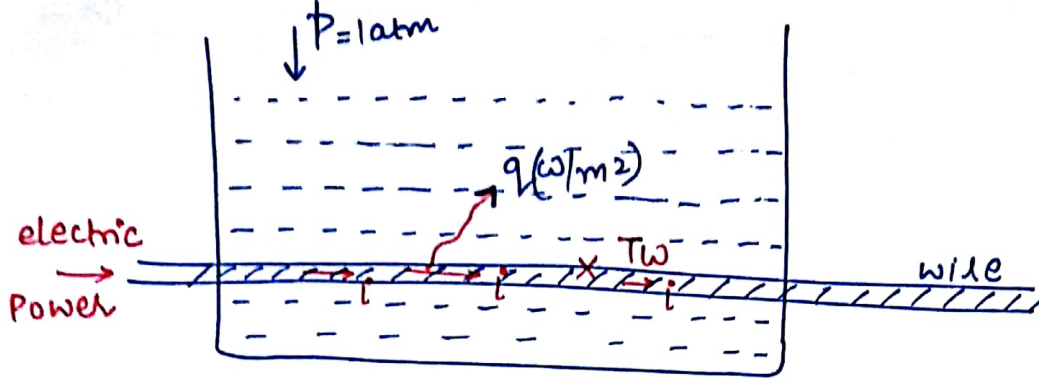 P=1atm
q(W/m2)
electric
Power
i
i
X
TW
i
wire